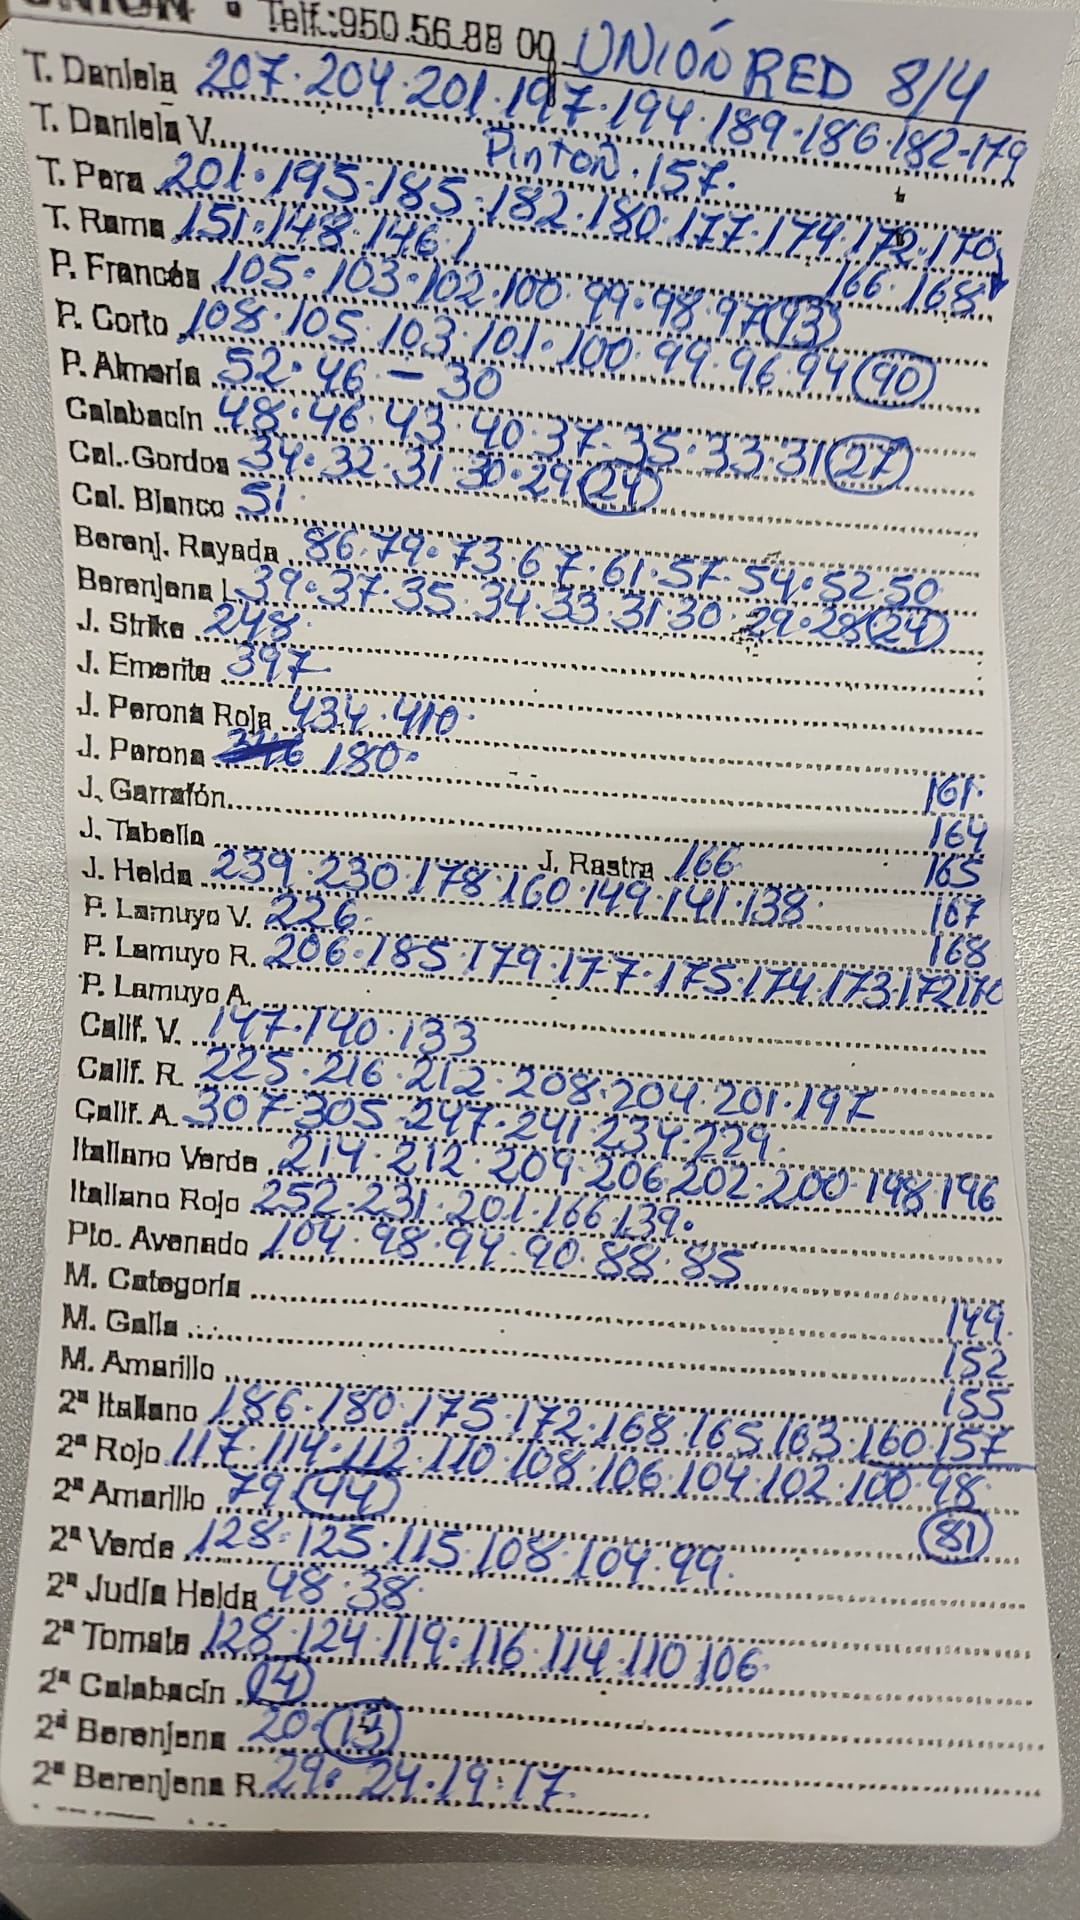 UNION • Telf.:950.56.88 00 UNIÓN RED 8/4
T. Daniela 207.204.201.197.194.189.186.182-179
T. Daniela V. Pinton.157.
T. Pera 201.195.185.182.180.177.174.172.170
T. Rama 151.148.146.1 166.168
P. Francés 105.103.102.100.99.98.97 93
P. Corto 108.105.103.101.100.99.96.94 90
P. Almería 52.46 - 30
Calabacín 48.46.43.40.37.35.33.31 27
Cal. Gordos 34.32.31.30.29 24
Cal. Blanco 51.
Berenj. Rayada 86.79.73.67.61.57.54.52.50
Berenjena L. 39.37.35.34.33.31.30.29.28 24
J. Strike 248.
J. Emerite 397
J. Perona Roja 434.410.
J. Perona 180.
J. Garrafón 161.
164
J. Tabella J. Rastra 166. 165
J. Helda 239.230.178.160.149.141.138. 167
P. Lamuyo V. 226. 168
P. Lamuyo R. 206.185.179.177.175.174.173.172 170
P. Lamuyo A.
Calif. V. 147.140.133
Calif. R. 225.216.212.208.204.201.197
Calif. A. 307-305.247.241.234.229.
Italiano Verde 214.212.209.206.202.200.198.196
Italiano Rojo 252.231.201.166.139.
Pto. Avenado 104.98.94.90.88.85
M. Categoría 149.
M. Galia 152
M. Amarillo 155
2ª Italiano 186.180.175.172.168.165.163.160.157
2ª Rojo 117.114.112.110.108.106.104.102.100.98.
2ª Amarillo 79 44 81
2ª Verde 128.125.115.108.104.99.
2ª Judía Helda 48.38
2ª Tomate 128.124.119.116.114.110 106.
2ª Calabacín 14
2ª Berenjena 20. 13
2ª Berenjena R. 29.24.19.17.